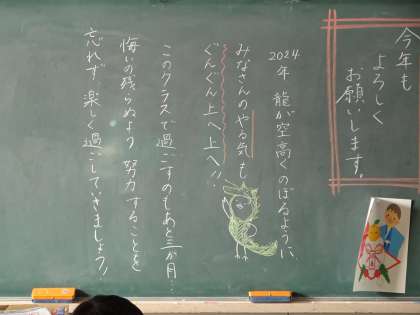 今年も
よろしく
お願いします。
2024年 龍が空高くのぼるように、
みなさんのやる気も
ぐんぐん上へ上へ!!
このクラスで過ごすのもあと三か月…
悔いの残らぬよう 努力することを
忘れず 楽しく過ごしていきましょう!